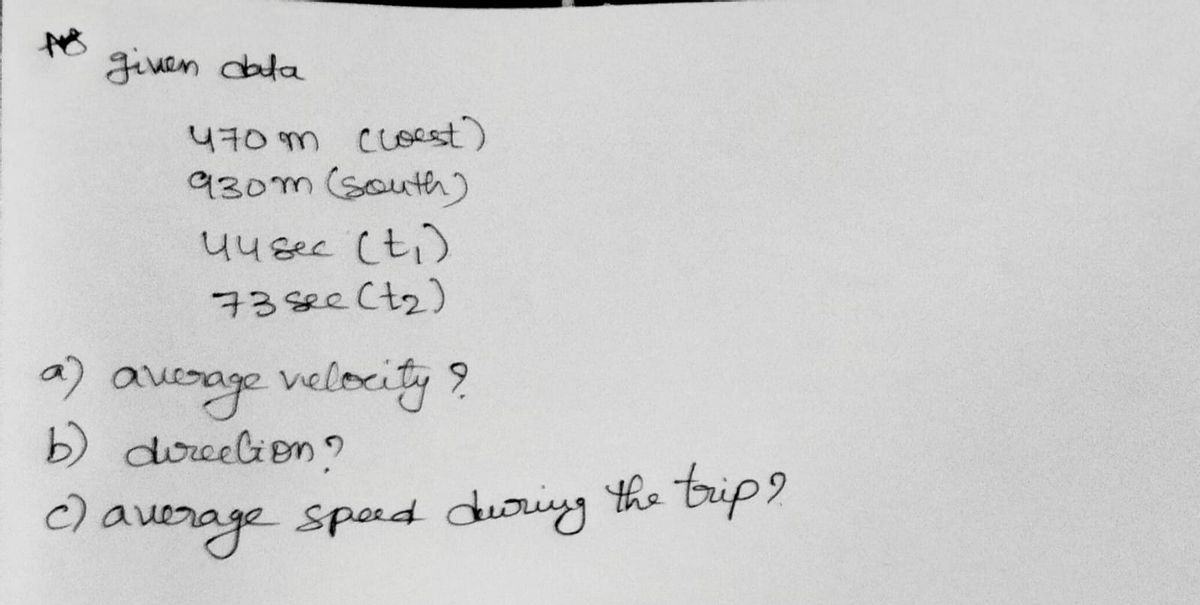 given data
470 m (west)
930m (south)
44 sec (t₁)
73 sec (t₂)
a) average velocity ?
b) direction ?
c) average speed during the trip ?